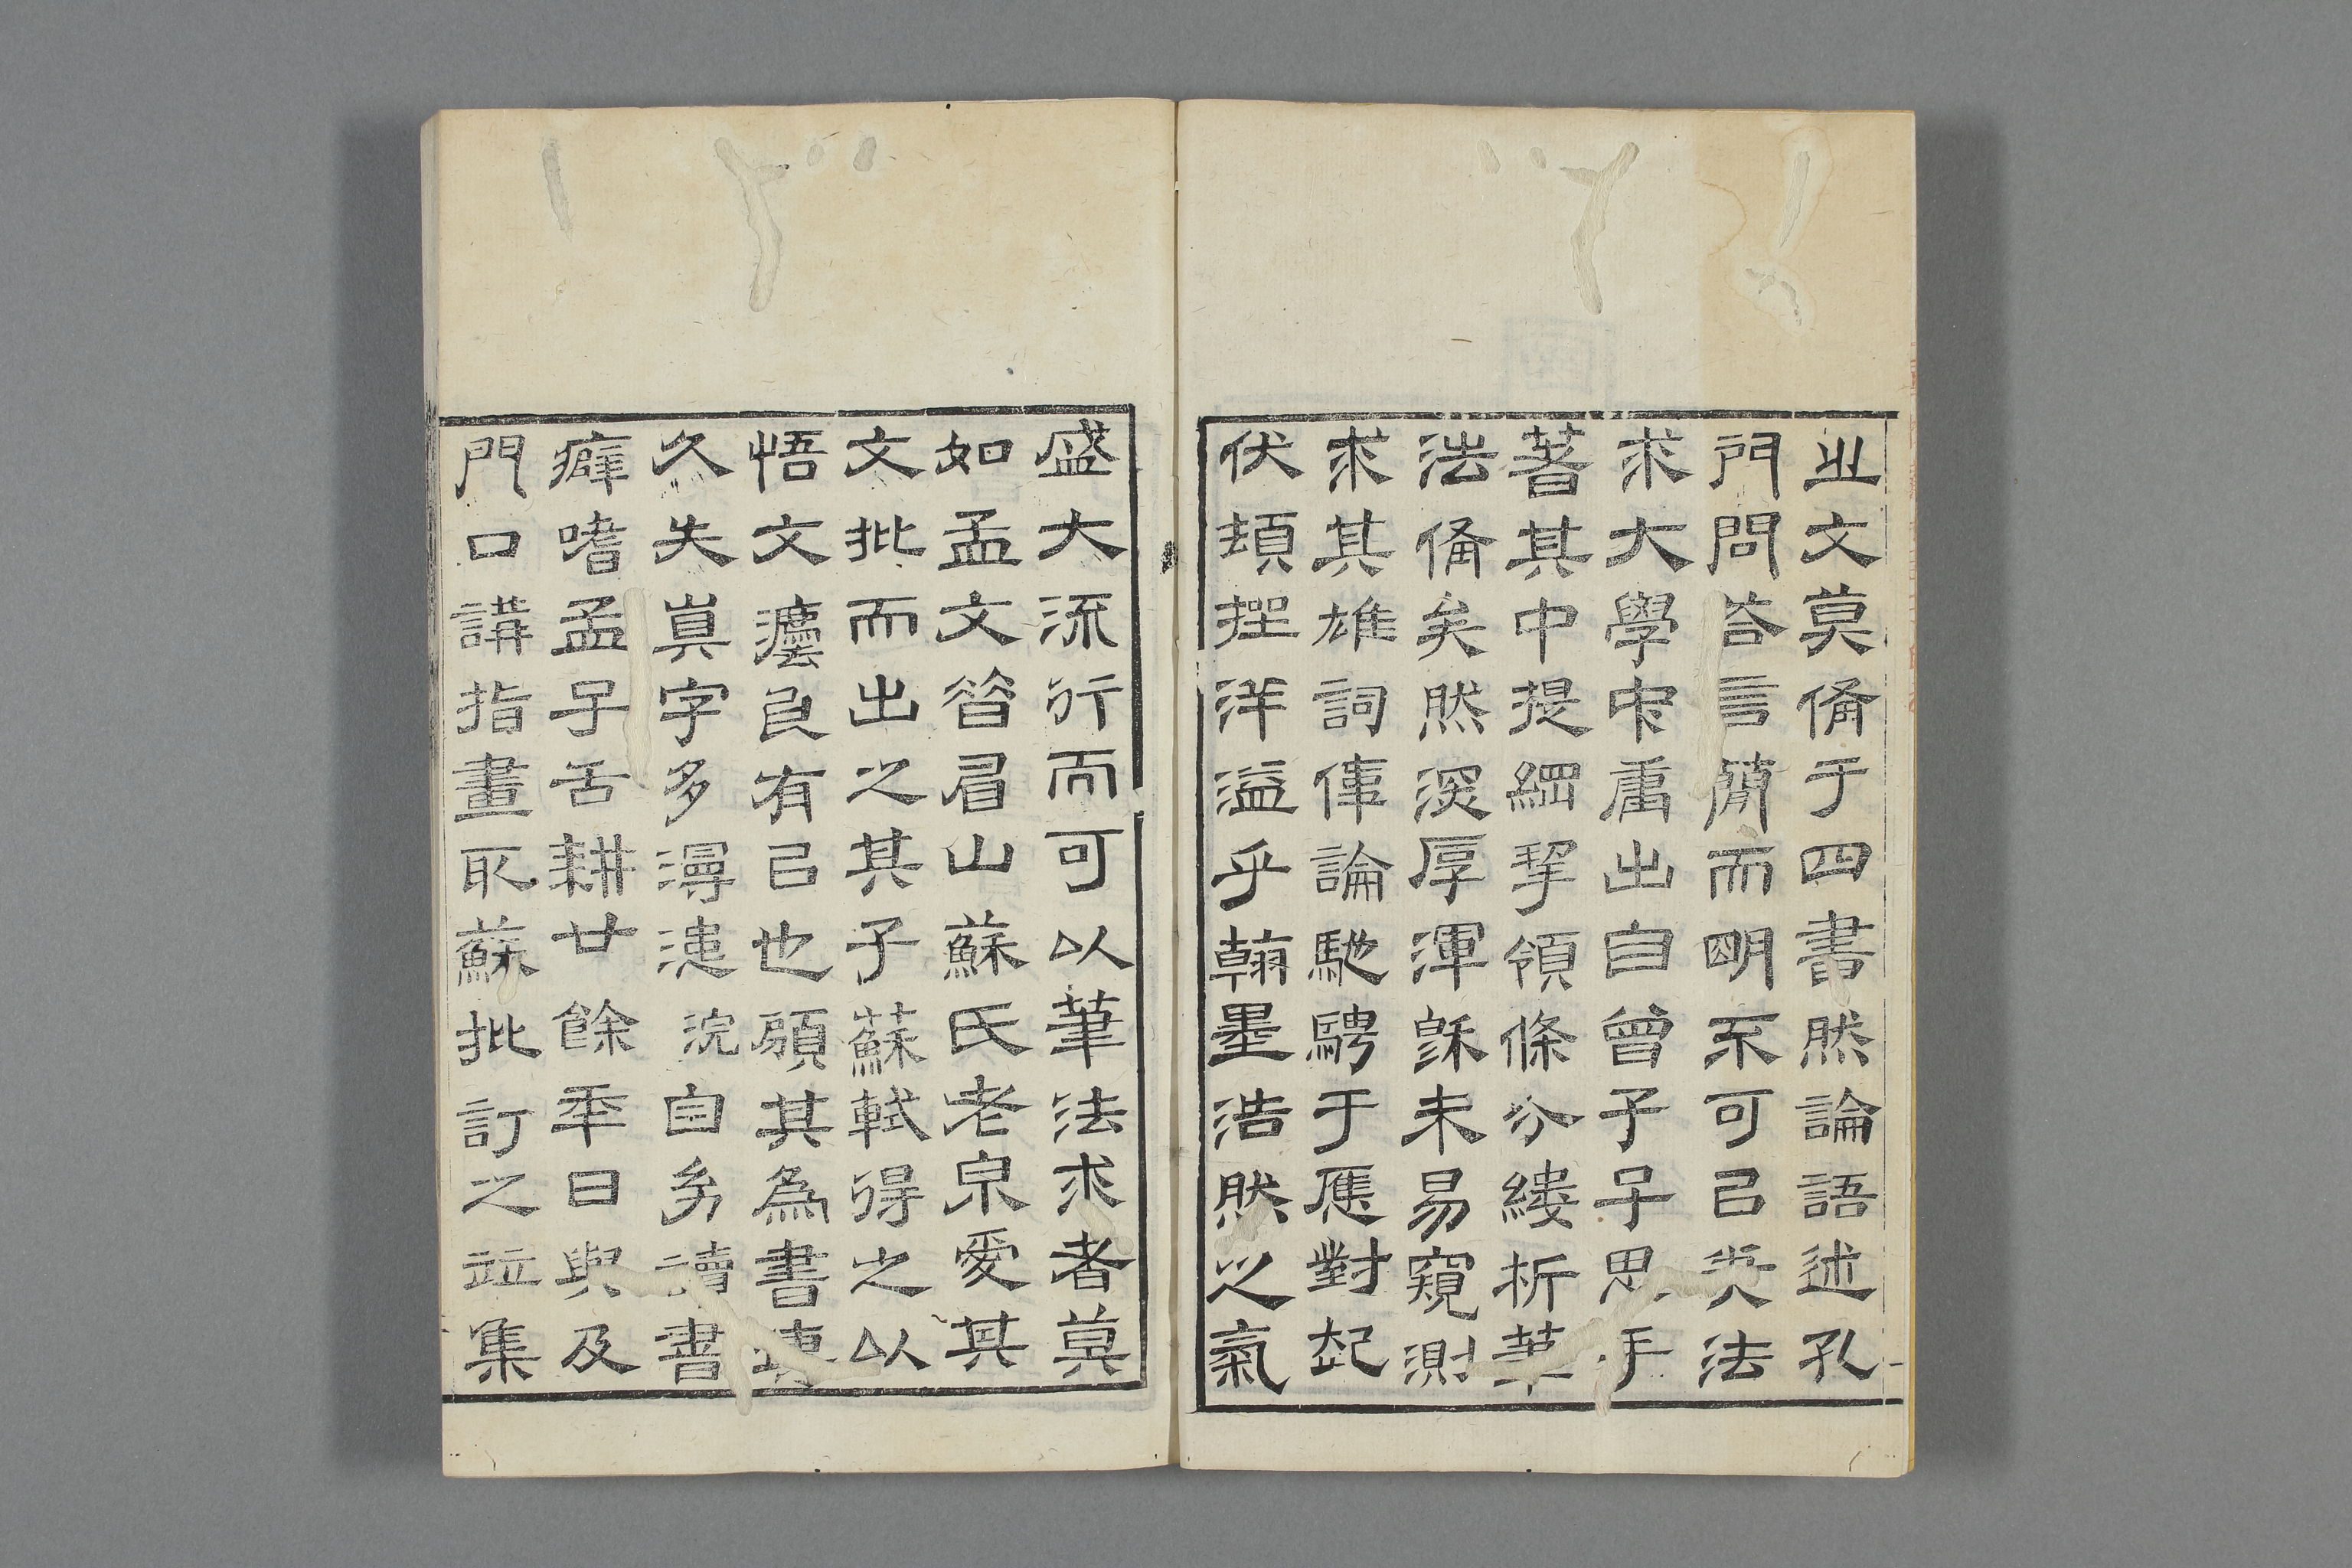 㞢文莫備于四書然論語述孔
門問答言簡而明不可㠯法
求大學中庸出自曾子子思手
著其中提綱挈領條分縷析筆
法備矣然深厚渾穆未易窺測
求其雄詞偉論馳騁于應對起
伏頓挫洋溢乎翰墨浩然之氣
盛大流行而可以筆法求者莫
如孟文昔眉山蘇氏老泉愛其
文批而出之其子蘇軾得之以
悟文灋良有㠯也顧其為書傳
久失真字多漫漶浣自幼讀書
癖嗜孟子舌耕廿餘年日與及
門口講指畫取蘇批訂之竝集